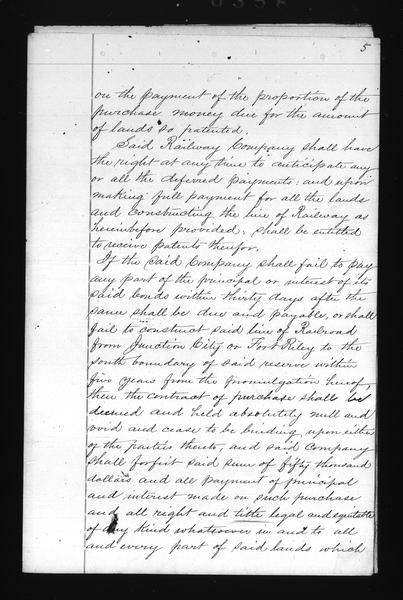 5
on the payment of the proportion of the
purchase money due for the amount
of lands so patented.
Said Railway Company shall have
the right at any time to anticipate any
or all the deferred payments; and upon
making full payment for all the lands
and constructing the line of Railway as
hereinbefore provided, shall be entitled
to receive patents therefor.
If the said Company shall fail to pay
any part of the principal or interest of its
said bonds within thirty days after the
same shall be due and payable, or shall
fail to construct said line of Railroad
from Junction City or Fort Riley to the
south boundary of said reserve within
five years from the promulgation hereof,
then the contract of purchase shall be
deemed and held absolutely null and
void and cease to be binding upon either
of the parties thereto, and said Company
shall forfeit said sum of fifty thousand
dollars and all payment of principal
and interest made on such purchase
and all right and title legal and equitable
of any kind whatsoever in and to all
and every part of said lands which